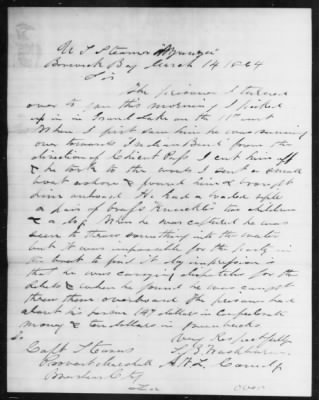 U S Steamer
Berwick Bay March 14 1864
Sir
The prisoner I turned
over to you this morning I picked
up in in Grand Lake on the 11th inst
When I first saw him he was running
over towards Indian Bend from the
direction of Pass I cut him off
& he took to the woods I sent a small
boat ashore & found him & brought
him onboard He had a
a pair of two children
& a dog When he was captured he was
seen to throw something into the water
but it was impossible for the party in
the boat to find it My impression is
that he was carrying dispatches for the
Rebels & when he found he was caught
threw them overboard The prisoner had
about his person 147 dollars in Confederate
money & ten dollars in greenbacks
Very Respectfully
To
Capt Stearns
Provost Marshall
Brashear City
La
over